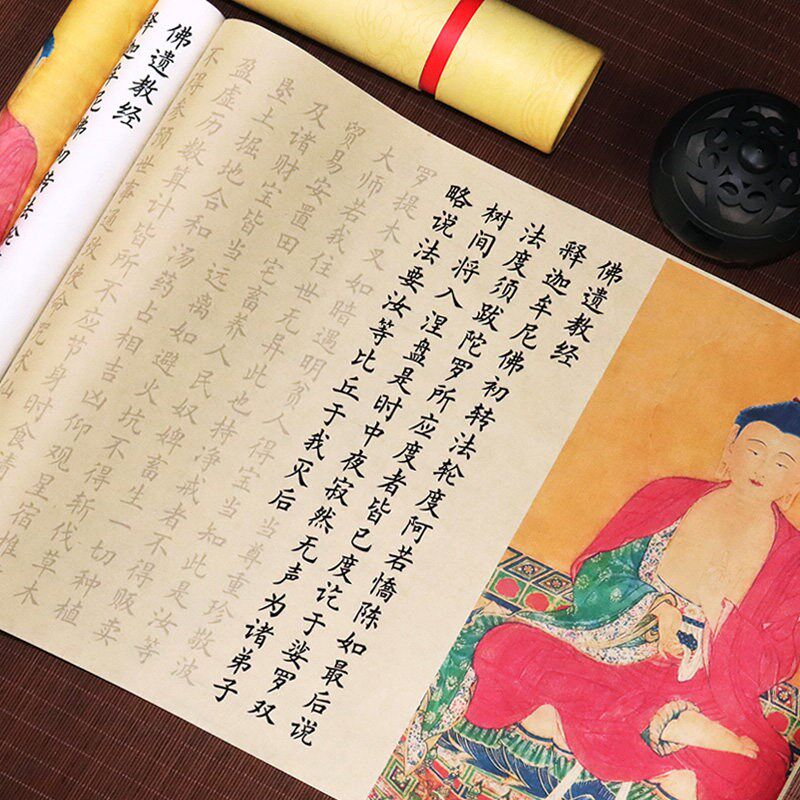 佛遗教经
释迦牟尼佛初转法轮度阿若憍陈如最后说
法度须跋陀罗所应度者皆已度讫于娑罗双
树间将入涅盘是时中夜寂然无声为诸弟子
略说法要汝等比丘于我灭后当尊重珍敬波
罗提木叉如暗遇明贫人得宝当知此是汝等
大师若我住世无异此也持净戒者不得贩卖
贸易安置田宅畜养人民奴婢畜生一切种植
及诸财宝皆当远离如避火坑不得斩伐草木
垦土掘地合和汤药占相吉凶仰观星宿推
盈虚历数算计皆所不应节身时食清
不得参预世事通致使命咒术仙
佛遗教经
释迦牟尼佛初转法轮